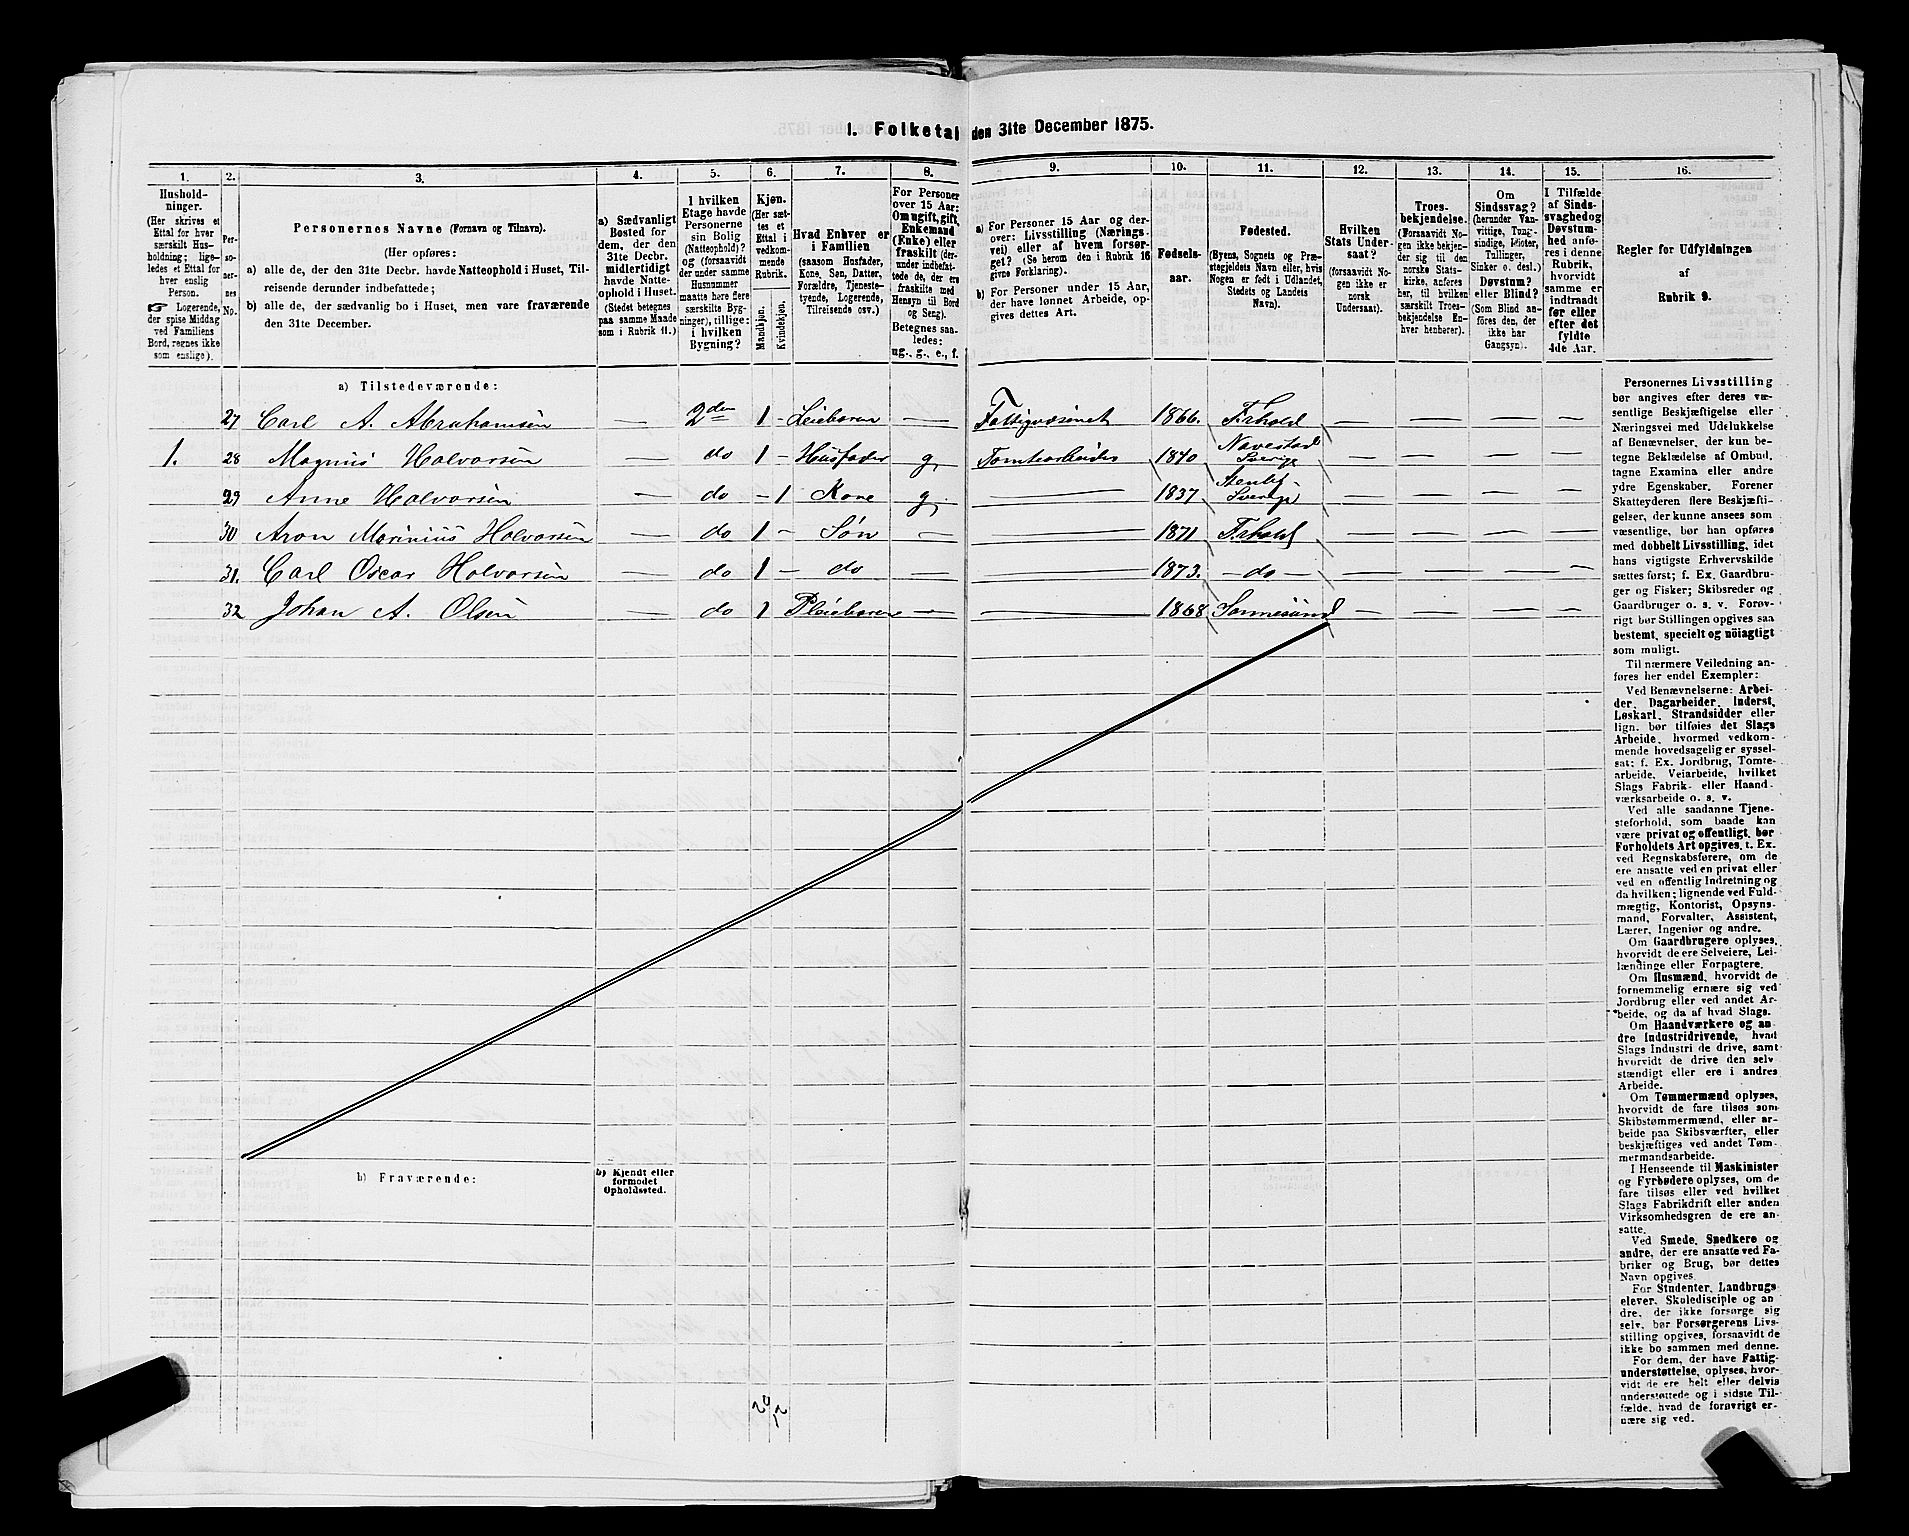 1. Folketal den 31te December 1875.
1.
Hushold-
ninger.
(Her skrives et
Ettal for hver
særskilt Hus-
holdning; lige-
ledes et Ettal for
hver enslig
Person.
☞ Logerende,
der spise Middag
ved Familiens
Bord, regnes ikke
som enslige).
2.
Per-
so-
ner-
nes
No.
3.
Personernes Navne (Fornavn og Tilnavn).
(Her opføres:
a) alle de, der den 31te Decbr. havde Natteophold i Huset, Til-
reisende derunder indbefattede;
b) alle de, der sædvanlig bo i Huset, men vare fraværende
den 31te December.
4.
a) Sædvanligt
Bosted for
dem, der den
31te Decbr.
midlertidigt
havde Natte-
ophold i Huset.
(Stedet betegnes
paa samme Maade
som i Rubrik 11.)
5.
I hvilken
Etage havde
Personerne
sin Bolig
(Natteophold)?
og (forsaavidt
der under samme
Husnummer
maatte høre flere
særskilte Byg-
ninger), tillige:
i hvilken
Bygning?
6.
Kjøn.
(Her sæt-
tes et
Ettal i
vedkom-
mende
Rubrik.
Mandkjøn.
Kvindekjøn.
7.
Hvad Enhver er
i Familien
(saasom Husfader,
Kone, Søn, Datter,
Forældre, Tjeneste-
tyende, Logerende,
Tilreisende osv.)
8.
For Personer
over 15 Aar:
Om ugift, gift,
Enkemand
(Enke) eller
fraskilt (der-
under indbefat-
tede de, der ere
fraskilte med
Hensyn til Bord
og Seng).
Betegnes saa-
ledes:
ug., g., e., f.
9.
a) For Personer 15 Aar og der-
over: Livsstilling (Nærings-
vei) eller af hvem forsør-
get? (Se herom den i Rubrik 16
givne Forklaring).
b) For Personer under 15 Aar,
der have lønnet Arbeide, op-
gives dettes Art.
10.
Fødsels-
aar.
11.
Fødested.
(Byens, Sognets og Præ-
stegjeldets Navn eller, hvis
Nogen er født i Udlandet,
Stedets og Landets
Navn).
12.
Hvilken
Stats Under-
saat?
(forsaavidt No-
gen ikke er
norsk
Undersaat).
13.
Troes-
bekjendelse.
(Forsaavidt No-
gen ikke bekjen-
der sig til den
norske Stats-
kirke, anføres
her, til hvilken
særskilt Troes-
bekjendelse En-
hver henhører).
14.
Om
Sindssvag?
(herunder Van-
vittige, Tung-
sindige, Idioter,
Tullinger,
Sinker o. desl.)
Døvstum?
eller Blind?
(Som Blind an-
føres den, der
ikke har
Gangsyn).
15.
I Tilfælde
af Sinds-
svaghed og
Døvstum-
hed anfø-
res i denne
Rubrik,
hvorvidt
samme er
indtraadt
før eller
efter det
fyldte
4de Aar.
16.
Regler for Udfyldningen
af
Rubrik 9.
a) Tilstedeværende:
27 Carl A. Abrahamsen — 2den 1 - Leiebaren — Fattigvæsenet 1866. Frhald — — — —
1. 28 Magnus Halvorsen do 1 - Husfader g. Tomtearbeider 1840 Navestad Sverige — — — —
29 Anne Halvorsen — do - 1 Kone g. — 1837 Sverige — — — —
30 Aron Marinius Halvorsen — do 1 - Søn — — 1871 Frhald — — — —
31. Carl Oscar Halvorsen — do 1 - do — — 1873. - do - — — — —
32 Johan A. Olsen — do 1 Pleiebaren — — 1868 Sannesund — — — —
b) Fraværende:
b) Kjendt eller
formodet
Opholdssted.
20
12
Personernes Livsstilling
bør angives efter deres væ-
sentlige Beskjæftigelse eller
Næringsvei med Udelukkelse
af Benævnelser, der kun be-
tegne Beklædelse af Ombud,
tagne Examina eller andre
ydre Egenskaber. Forener
Skatteyderen flere Beskjæfti-
gelser, der kunne ansees som
væsentlige, bør han opføres
med dobbelt Livsstilling, idet
hans vigtigste Erhvervskilde
sættes først; f. Ex. Gaardbru-
ger og Fisker; Skibsreder og
Gaardbruger o. s. v. Forøv-
rigt bør Stillingen opgives saa
bestemt, specielt og nöiagtigt
som muligt.
Til nærmere Veiledning an-
føres her endel Exempler:
Ved Benævnelserne: Arbei-
der, Dagarbeider, Inderst,
Løskarl, Strandsidder eller
lign. bør tilføies det Slags
Arbeide, hvormed vedkom-
mende hovedsagelig er syssel-
sat; f. Ex. Jordbrug, Tomte-
arbeide, Veiarbeide, hvilket
Slags Fabrik- eller Haand-
værksarbeide o. s. v.
Ved alle saadanne Tjene-
steforhold, som baade kan
være privat og offentligt, bør
Forholdets Art opgives, t. Ex.
ved Regnskabsførere, om de
ere ansatte ved en privat eller
ved en offentlig Indretning og
da hvilken; lignende ved Fuld-
mægtig, Kontorist, Opsyns-
mand, Forvalter, Assistent,
Lærer, Ingeniør og andre.
Om Gaardbrugere oplyses,
hvorvidt de ere Selveiere, Lei-
lændinge eller Forpagtere.
Om Husmænd, hvorvidt de
fornemmelig ernære sig ved
Jordbrug eller ved andet Ar-
beide, og da af hvad Slags.
Om Haandværkere og an-
dre Industridrivende, hvad
Slags Industri de drive, samt
hvorvidt de drive den selv-
stændigt eller ere i andres
Arbeide.
Om Tømmermænd oplyses,
hvorvidt de fare tilsøs som
Skibstømmermænd, eller ar-
beide paa Skibsværfter, eller
beskjæftiges ved andet Tøm-
mermandsarbeide.
I Henseende til Maskinister
og Fyrbødere oplyses, om de
fare tilsøs eller ved hvilket
Slags Fabrikdrift eller anden
Virksomhedsgren de ere an-
satte.
Ved Smede, Snedkere og
andre, der ere ansatte ved Fa-
briker og Brug, bør dettes
Navn opgives.
For Studenter, Landbrugs-
elever, Skoledisciple og an-
dre, der ikke forsørge sig
selv, bør Forsørgerens Livs-
stilling opgives, forsaavidt de
ikke bo sammen med denne.
For dem, der have Fattig-
understøttelse, oplyses, hvor-
vidt de ere helt eller delvis
understøttede og i sidste Til-
fælde, hvad de forøvrigt er-
nære sig ved.